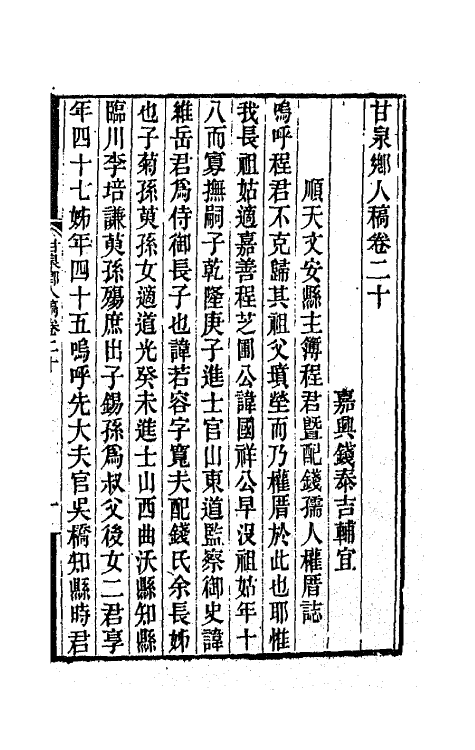 甘泉鄉人稿卷二十
嘉興錢泰吉輔宜
順天文安縣主簿程君暨配錢孺人權厝誌
嗚呼程君不克歸其祖父墳塋而乃權厝於此也耶惟
我長祖姑適嘉善程芝圃公諱國祥公早沒祖姑年十
八而寡撫嗣子乾隆庚子進士官山東道監察御史諱
維岳君為侍御長子也諱若容字寬夫配錢氏余長姊
也子菊孫萸孫女適道光癸未進士山西曲沃縣知縣
臨川李培謙萸孫殤庶出子錫孫為叔父後女二君享
年四十七姊年四十五嗚呼先大夫官吳橋知縣時君
甘泉鄉人稿卷二十
一